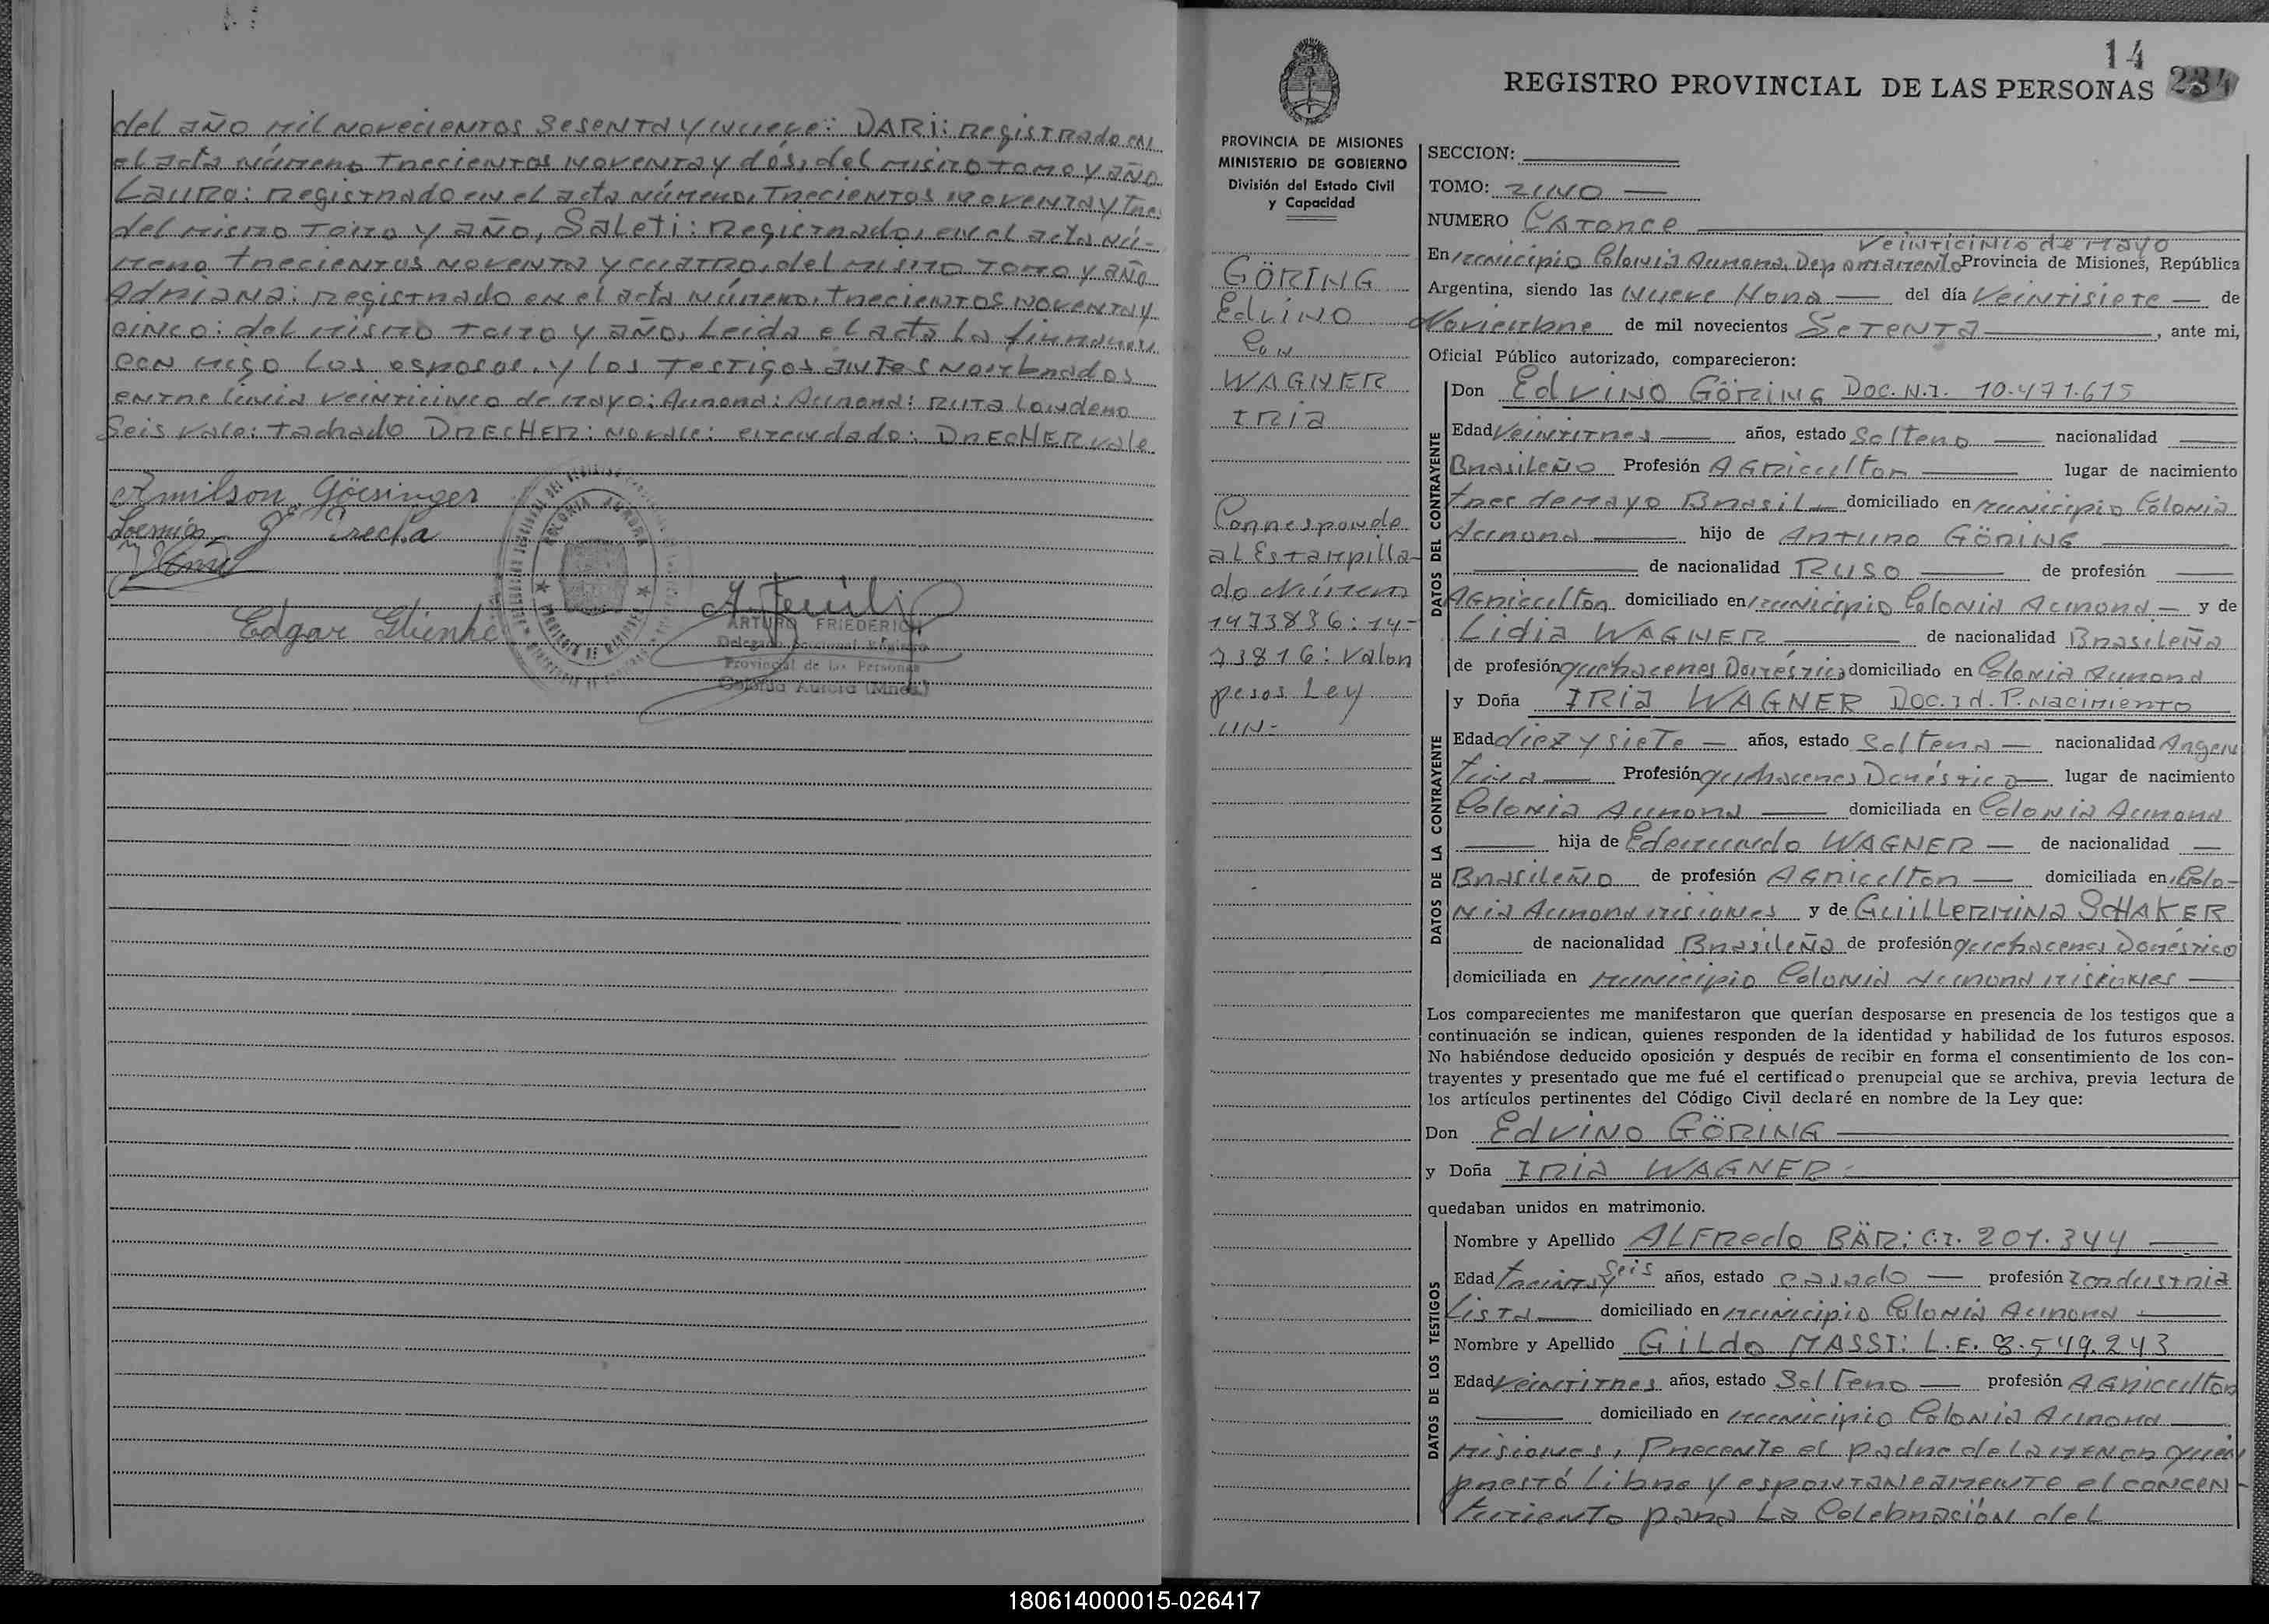 del año mil novecientos sesenta y nueve: DARi: Registrado en
el acta número trecientos noventa y dós, del mismo tomo y año
Lauro: Registrado en el acta número, trecientos noventa y tres
del mismo tomo y año, Saleti: Registrado, en el acta nú-
mero trecientos noventa y cuatro, del mismo tomo y año
Adriana: registrado en el acta número, trecientos noventa y
cinco: del mismo tomo y año, Leida el acta La firmaron
con migo Los esposos, y los testigos antes nombrados
entre linia veinticinco de mayo: Aurora: Aurora: Ruta
Seis vale: tachado DRECHER: no vale: enmendado: DRECHER vale
Armilson Göcsinger
Edgar Glienke
ARTURO FRIEDERICH
Delegado Seccional Registro
Provincial de las Personas
Colonia Aurora (Mnes.)
14
REGISTRO PROVINCIAL DE LAS PERSONAS 234
PROVINCIA DE MISIONES
MINISTERIO DE GOBIERNO
División del Estado Civil
y Capacidad
GÖRING
Edvino
Con
WAGNER
Iria
Corresponde
al Estampilla-
do número
1473836: 14-
73816: valor
pesos Ley
un-
SECCION:
TOMO: Uno
NUMERO Catorce
veinticinco de mayo
En municipio Colonia Aurora, Departamento Provincia de Misiones, República
Argentina, siendo las Nueve Hora del día veintisiete de
Noviembre de mil novecientos Setenta, ante mi,
Oficial Público autorizado, comparecieron:
DATOS DEL CONTRAYENTE
Don Edvino GÖRING Doc. N.I. 10.471.615
Edad veintitres años, estado Soltero nacionalidad
Brasileño Profesión AGRicultor lugar de nacimiento
tres de mayo Brasil domiciliado en municipio Colonia
Aurora hijo de Arturo GÖRING
de nacionalidad Ruso de profesión
Agricultor domiciliado en municipio Colonia Aurora y de
Lidia WAGNER de nacionalidad Brasileña
de profesión quehaceres Domésticos domiciliado en Colonia Aurora
DATOS DE LA CONTRAYENTE
y Doña IRIA WAGNER Doc. Id. P. Nacimiento
Edad diez y siete años, estado Soltera nacionalidad Argen
tina Profesión quehaceres Doméstico lugar de nacimiento
Colonia Aurora domiciliada en Colonia Aurora
hija de Edemundo WAGNER de nacionalidad
Brasileño de profesión AGricultor domiciliada en Colo-
nia Aurora misiones y de Guillermina SCHAKER
de nacionalidad Brasileña de profesión quehaceres Doméstico
domiciliada en municipio Colonia Aurora misiones
Los comparecientes me manifestaron que querían desposarse en presencia de los testigos que a
continuación se indican, quienes responden de la identidad y habilidad de los futuros esposos.
No habiéndose deducido oposición y después de recibir en forma el consentimiento de los con-
trayentes y presentado que me fué el certificado prenupcial que se archiva, previa lectura de
los artículos pertinentes del Código Civil declaré en nombre de la Ley que:
Don Edvino GÖRING
y Doña IRIA WAGNER
quedaban unidos en matrimonio.
DATOS DE LOS TESTIGOS
Nombre y Apellido ALFRedo BÄR: C.I. 201.344
Edad treinta y Seis años, estado casado profesión Indus­tria
lista domiciliado en municipio Colonia Aurora
Nombre y Apellido GiLdo MASSI: L.E. 8.549.243
Edad veintitres años, estado Soltero profesión AGricultor
domiciliado en municipio Colonia Aurora
Misiones, Precente el padre de La menor quien
prestó Libre y espontaneamente el concen-
timiento para La Celebración del
180614000015-026417